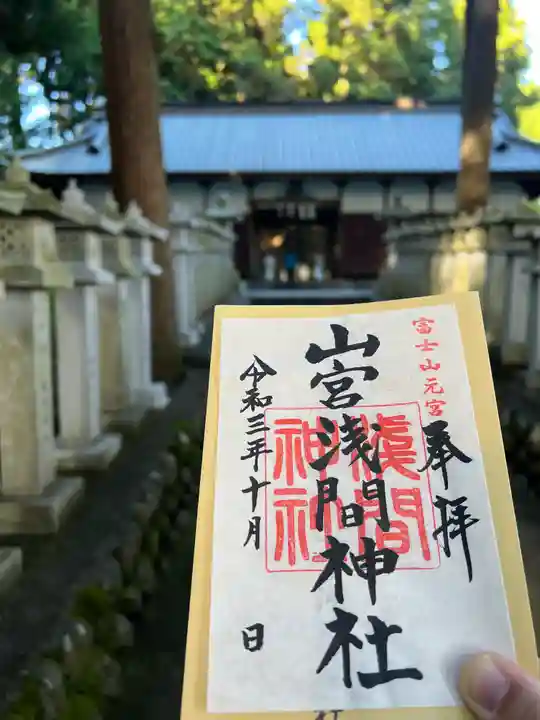 富士山元宮
奉拝
山宮浅間神社
浅間
神社
令和三年十月
日